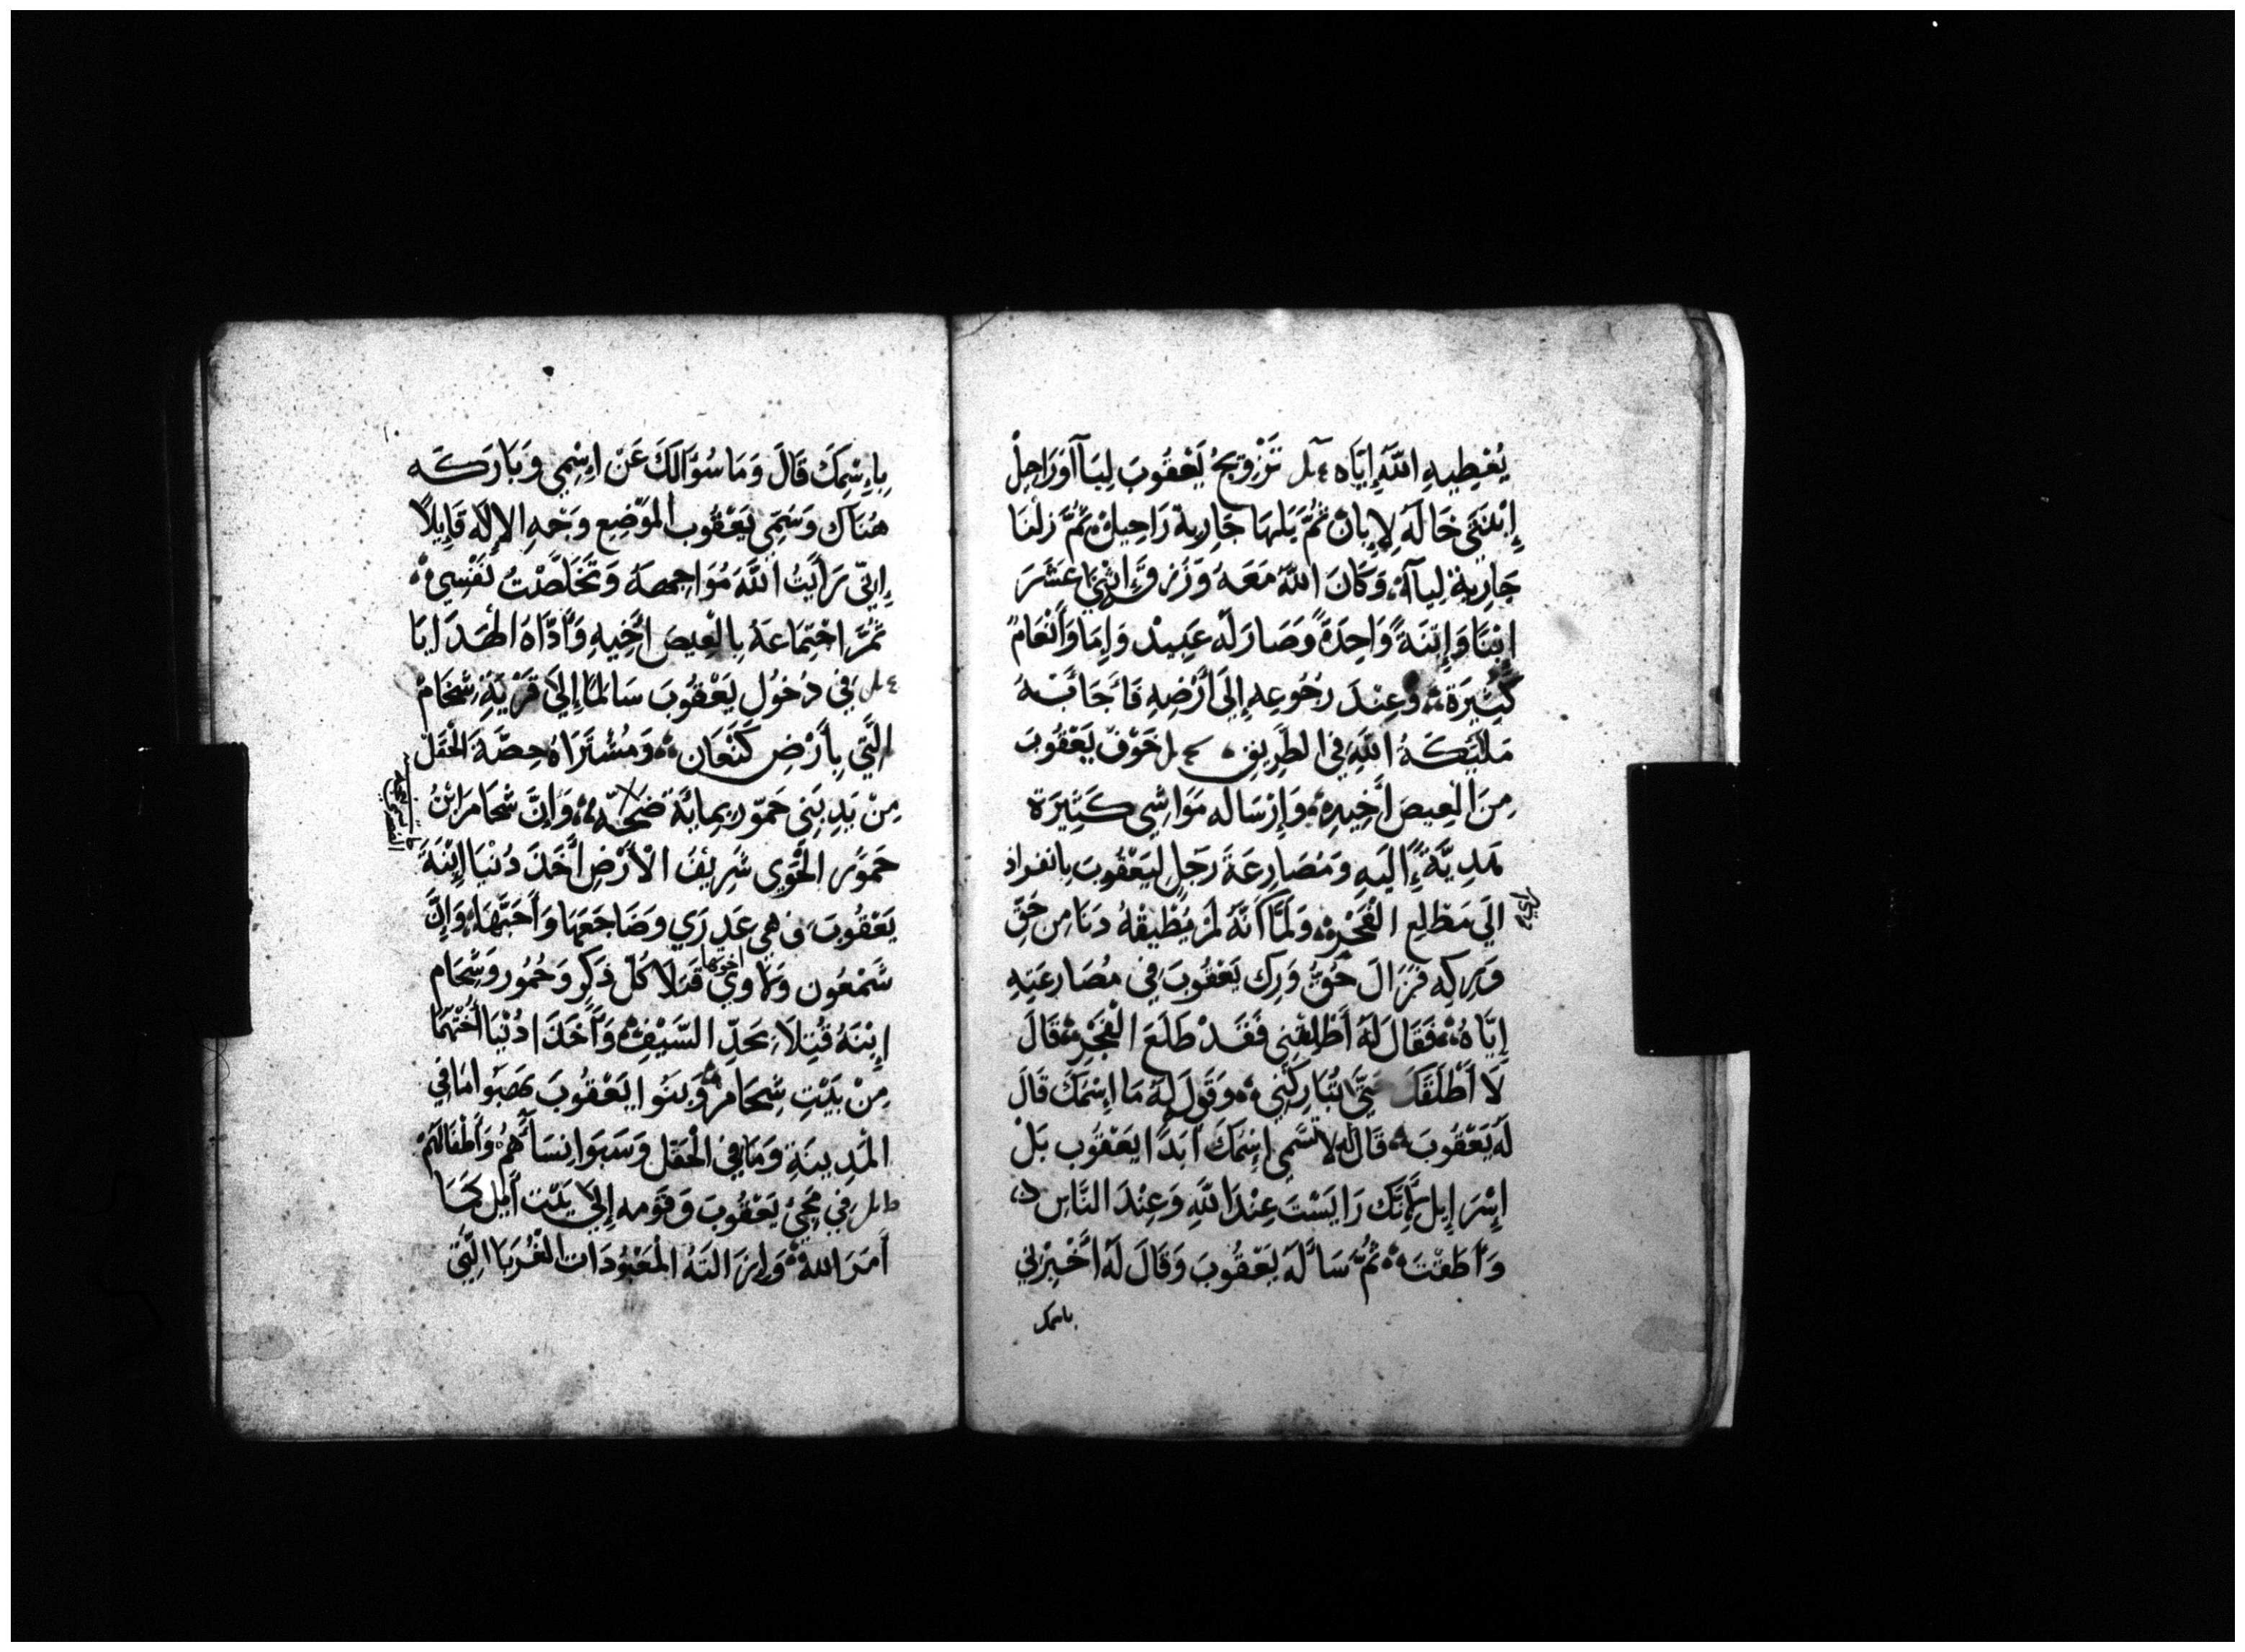 يُعْطِيهِ اللَّهِ إِيَّاه تَزْوِيجُ يَعْقُوبَ لِيَآ أَوَرَاحِلْ
إِبْنَتَى خَالَهُ لَإِبِانْ ثُمَّ بَلهَا جَارِية رَاحِيلْ ثُمَّ زلفَا
جَارِيةْ لِيآهْ وَكَانَ اللَّهُ مَعَهُ وَرُزقَ اثْنَي عَشَرَ
ابْنَا وَإِبْنَةً وَاحِدَةً وَصَارَ لَه عَبِيدْ وَإِمَا وَأَنْعَامٌ
كَثِيرَة وَعِنْدَ رجُوعِهِ إِلَى أَرْضِهِ فَأَجَابَتْهُ
مَلَيْكَةُ اللَّهِ فِي الطَرِيقِ خَوْفْ يَعْقُوبَ
مِنَ العِيصَ أَخِيهِ وَإِرْسَاله مَوَاشِي كَثِيَرة
هَدِيَّةً إِلَيهِ وَمُصَارِعَةَ رَجلٍ لِيَعْقُوبَ بِانفراد
الَي مَطْلِع الفَجْرِ وَلَمَّا أَنَّهُ لَمْ يُطِيقْهُ دَنَا مِن حَقِّ
وَرِكهِ فَزَالَ حُقُّ وَرِك يَعْقُوبَ فِي مُصَارعَتِهِ
إِيَّاهُ فَقَالَ لَهُ أَطْلِقْنِي فَقَدْ طَلَعَ الْفَجْرِ قَالَ
لَا أَطْلَقَكَ حَتَّي تُبَارِكَنِي وَقَولَ لَهُ مَا اسْمَكَ قَالَ
لَه يَعْقُوبَ قَالَ لَه لَا تسَّمِي إِسْمَكَ أَبَدًا يَعْقُوب بَلْ
إِسْرَإِيل لأَنَّك رَايَسْتَ عِنْدَ اللَّهِ وَعِنْدَ النَّاسِ
وَأَطَقْتَ ثُمَّ سَأَلَهُ يَعْقُوبَ وَقَالَ لَهُ أَخْبِرْنِي
باسمك
بِإِسْمِكَ قَالَ وَمَا سُؤَالَكَ عَنْ اِسْمِي وَبَارَكَه
هُنَاك وَسَمِّي يَعْقُوب الْمَوْضِع وَجْهِ الإِلَه قَايِلاً
إِنِّي رَأَيتُ اللَّهَ مُوَاجِهَهُ وَتَخَلَّصَتْ نَفْسِي
ثُمَّ اجْتِمَاعَهُ بِالْعِيصَ أَخِيهِ وَأَدَّاهَ الهَدَايَا
فِي دخُول يَعْقُوبَ سَالمًا إِلَيَ قَرْيَةِ شخَامْ
الَّتِي بِأَرْضِ كَنْعَان وَمُشْتَرَاهُ حِصَّةَ الْحَقَلْ
مِنْ يَدِ بَنِي حَمّور بِمايَة نَعْجه وَإِنَّ شخَامَ ابْنُ
حَمّور الْحَوِي شَرِيفَ الأَرْضِ أَخَذَ دُنْيَا إِبْنَةَ
يَعْقُوبَ وهِي عَدرَي وَضَاجَعَهَا وَأَحَبَّهَا وَإِنَّ
شَمْعُون وَلَاوِي اخوتها قَتلَا كُلّ ذَكَرٍ وَحُمُور وَشخَام
إِبْنَهُ قُتِلَا بحَدِّ السَّيْفِ وَأَخَذَا دُنْيَا أُخْتَهُمَا
مِنْ بَيْتِ شخَام وَبَنُوا يَعْقُوبَ نهَبُوا مَا فِي
الْمَدِينَةِ وَمَا فِي الْحَقَل وَسَبَوا نِسَأَهُمْ وَأَطْفَالَهُمْ
فِي مَجِئْ يَعْقُوبَ وَقَوْمه إِلَيَ بَيْت أَيل كمَا
أَمَرَ اللهُ وَإِزَالَتهُ الْمَعْبُودَات الغُرَبَا الِتي